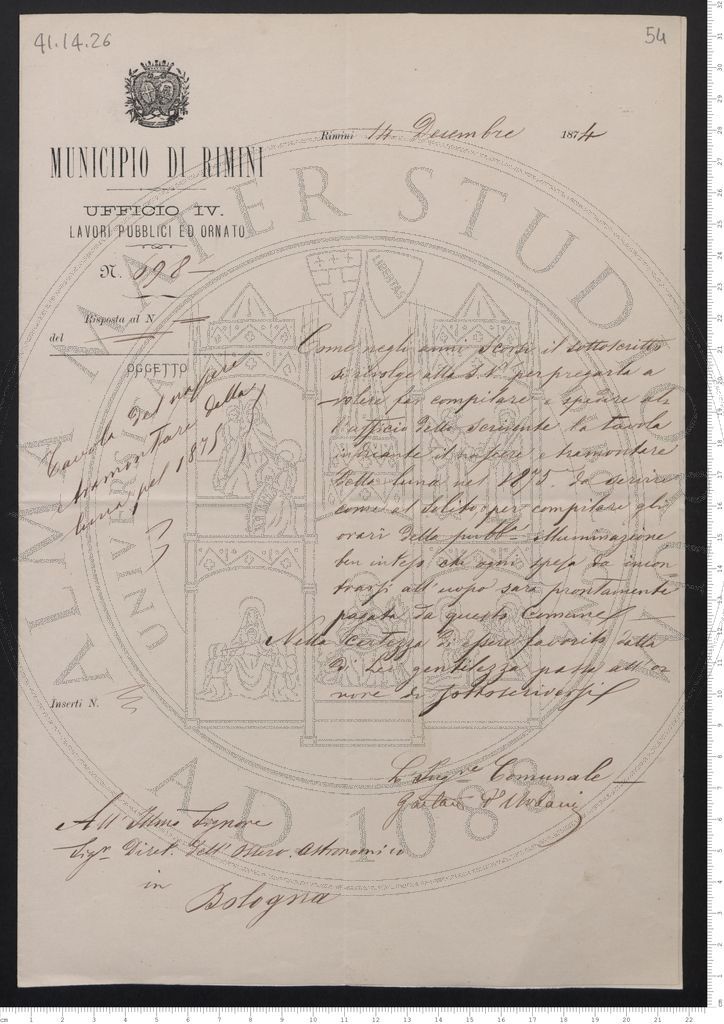 41.14.26
54
Rimini 14 Decembre 1874
MUNICIPIO DI RIMINI
UFFICIO IV.
LAVORI PUBBLICI ED ORNATO
N. 698
Risposta al N
del
OGGETTO
Tavola del nascere
tramontare della
luna pel 1875
Come negli anni scorsi il sottoscritto
si rivolge alla S.V. per pregarla a
volere far compilare e spedire al-
l'ufficio dello scrivente la tavola
indicante il nascere e tramontare
della luna nel 1875. da servire
come al solito per compilare gli
orarî della pubb.a illuminazione
ben inteso che ogni spesa da incon
trarsi all'uopo sarà prontamente
pagata da questo Comune
Nella certezza di essere favorito dalla
di Lei gentilezza passa all'o-
nore di sottoscriversi
Inserti N.
L'Ing.re Comunale
Gaetano Urbani
All' Illmo Signore
Sig.r Diret. dell' Osserv. Astronomico
in
Bologna
ALMA MATER STUDIORUM
UNIVERSITÀ
LIBERTAS
A.D. 1088